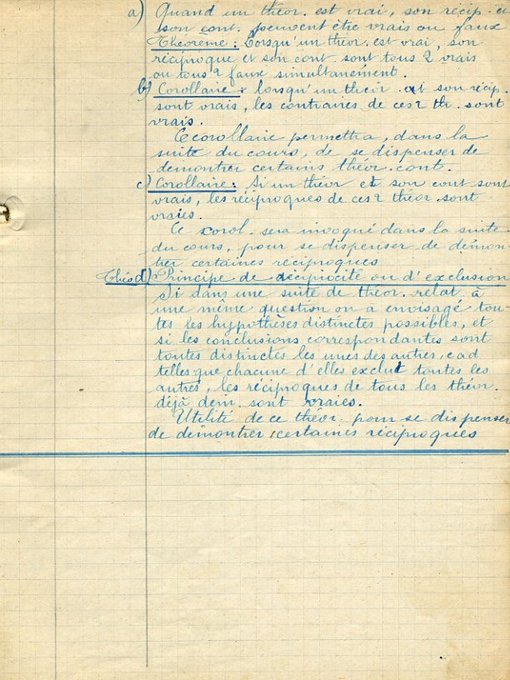 a) Quand un théor. est vrai, son récip. et
son cont. peuvent être vrais ou faux
Théorème : Lorsqu'un théor. est vrai, son
réciproque et son cont. sont tous 2 vrais
ou tous 2 faux simultanément.
b) Corollaire : lorsqu'un theor. et son récip.
sont vrais, les contraires de ces 2 th. sont
vrais.
Ce corollaire permettra, dans la
suite du cours, de se dispenser de
démontrer certains théor. cont.
c) Corollaire : Si un théor et son cont sont
vrais, les réciproques de ces 2 théor. sont
vraies.
Ce corol. sera invoqué dans la suite
du cours, pour se dispenser de démon-
trer certaines réciproques
Théo d) Principe de réciprocité ou d'exclusion
Si dans une suite de théor. relat. à
une même question on a envisagé tou-
tes les hypothèses distinctes possibles, et
si les conclusions correspondantes sont
toutes distinctes les unes des autres, c à d
telles que chacune d'elles exclut toutes les
autres, les réciproques de tous les théor.
déjà dém. sont vraies.
Utilité de ce théor. pour se dispenser
de démontrer certaines réciproques